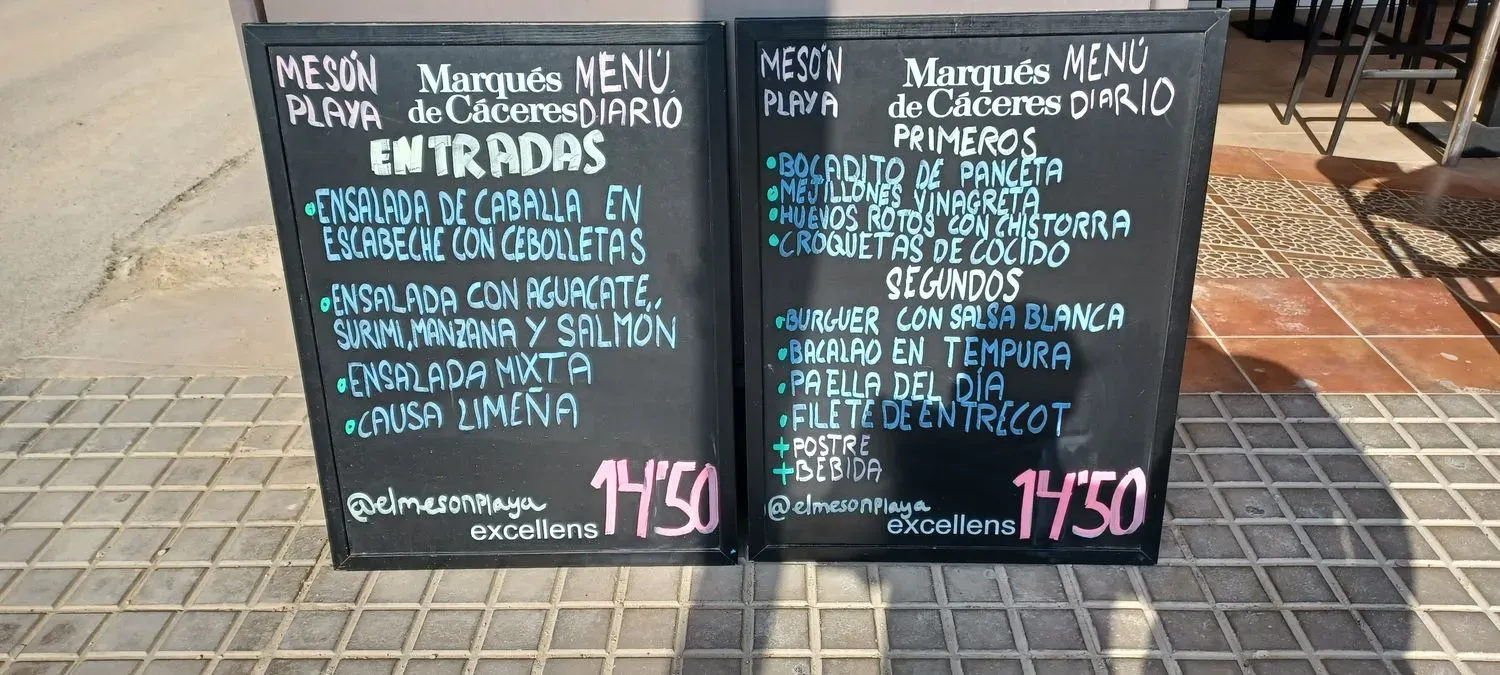 MESÓN
PLAYA
Marqués
de Cáceres
MENÚ
DIARIO
ENTRADAS
•ENSALADA DE CABALLA EN
ESCABECHE CON CEBOLLETAS
•ENSALADA CON AGUACATE,
SURIMI, MANZANA Y SALMÓN
•ENSALADA MIXTA
•CAUSA LIMEÑA
@elmesonplaya
excellens
14'50
MESÓN
PLAYA
Marqués
de Cáceres
MENÚ
DIARIO
PRIMEROS
•BOCADITO DE PANCETA
•MEJILLONES VINAGRETA
•HUEVOS ROTOS CON CHISTORRA
•CROQUETAS DE COCIDO
SEGUNDOS
•BURGUER CON SALSA BLANCA
•BACALAO EN TEMPURA
•PAELLA DEL DÍA
•FILETE DE ENTRECOT
+POSTRE
+BEBIDA
@elmesonplaya
excellens
14'50